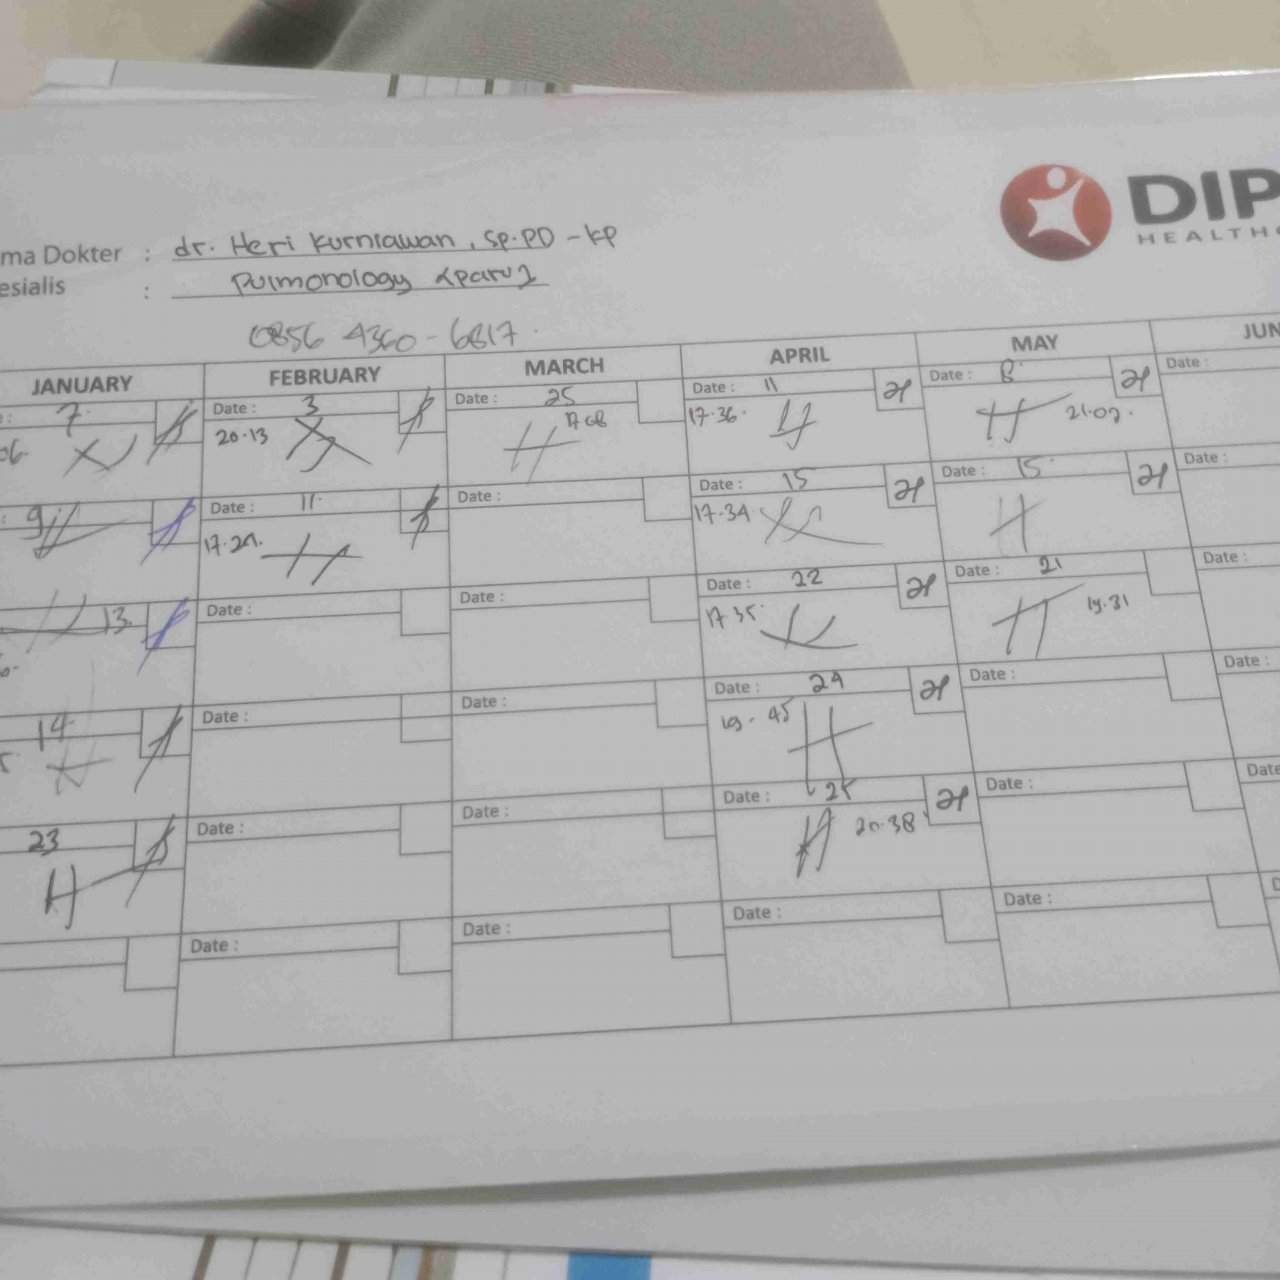 DIP
HEALTHC
ma Dokter : dr. Heri Kurniawan, Sp.PD - KP
esialis : Pulmonology <paru>
0856 4360 - 6817
JANUARY FEBRUARY MARCH APRIL MAY JUN
: 7 Date : 3 Date : 25 Date : 11 Date : 8 Date :
06. 20.13 17.08 17.36. 21.02.
: 9 Date : 11 Date : Date : 15 Date : 15 Date :
17.21. 17.34
13 Date : Date : Date : 22 Date : 21 Date :
17.35 19.31
14 Date : Date : Date : 24 Date : Date :
19.45
23 Date : Date : Date : 25 Date : Date
20.38
Date : Date : Date : Date : D